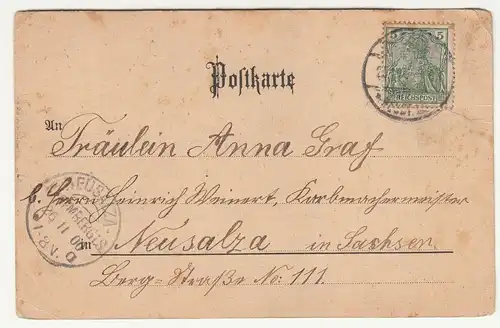 5 5
REICHSPOST
Postkarte
An
Fräulein Anna Graf
b. Herrn Heinrich Weinert, Korbmachermeister
in Neusalza in Sachsen.
Berg-Straße No: 111.
NEUSALZA